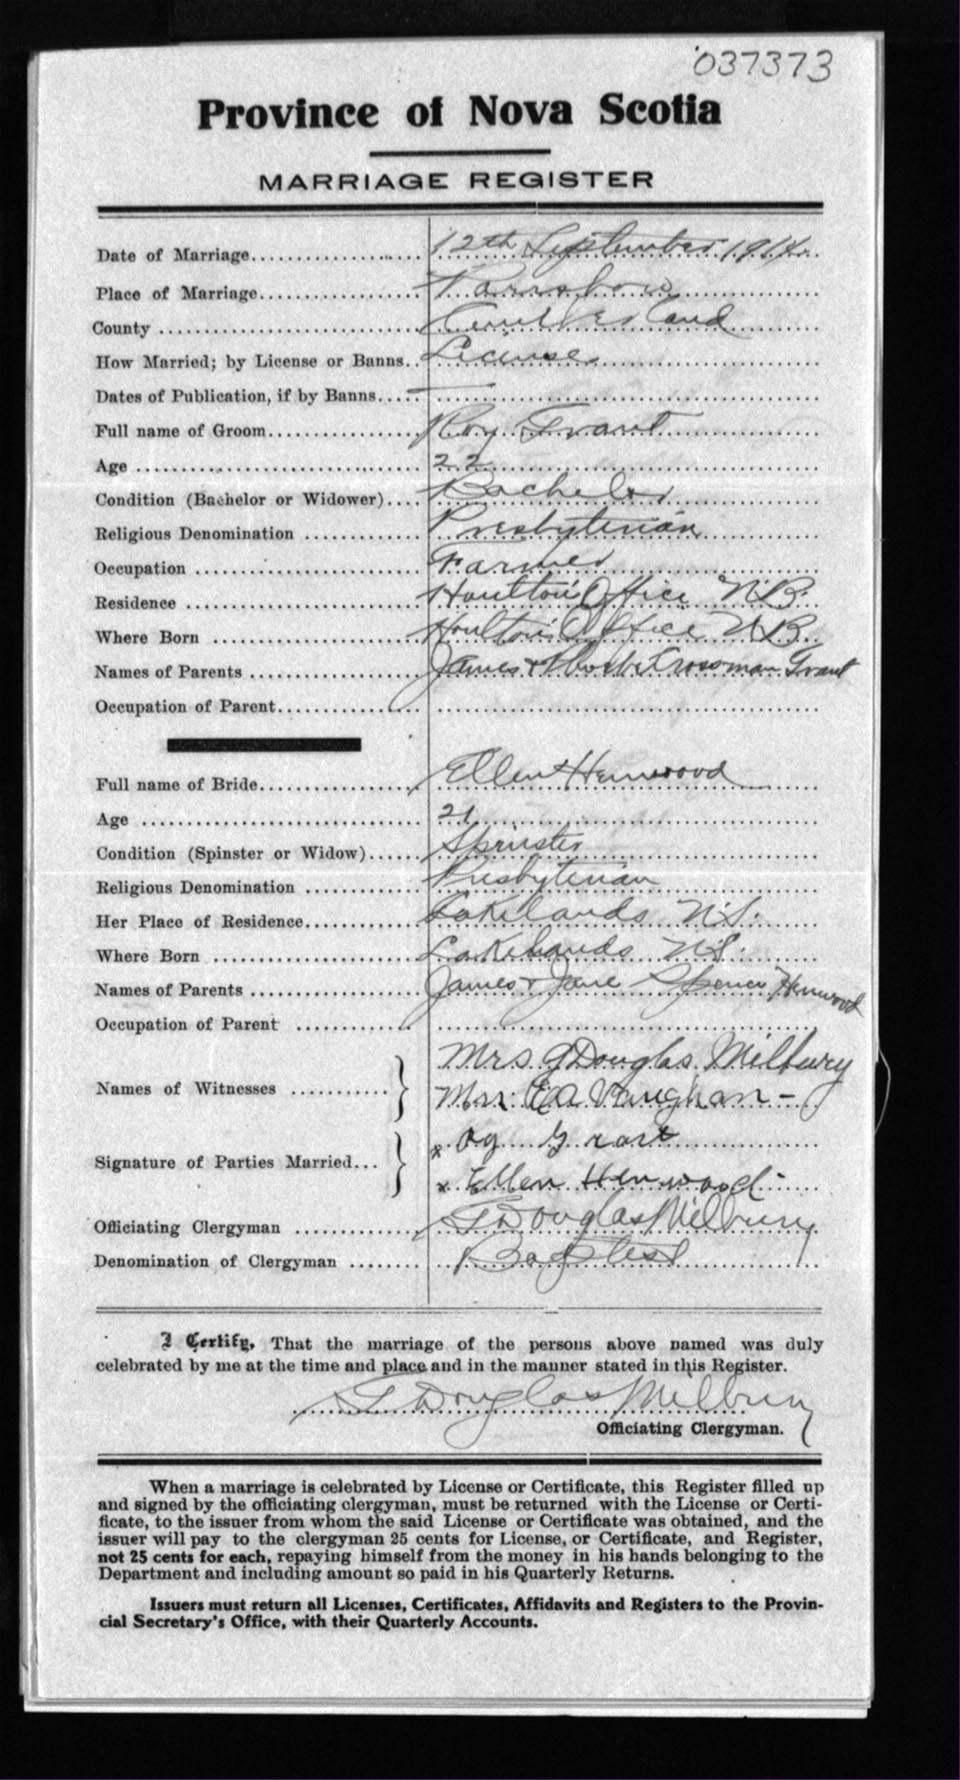 037373
Province of Nova Scotia
MARRIAGE REGISTER
Date of Marriage 12th September 1914
Place of Marriage Parrsboro
County Cumberland
How Married; by License or Banns License
Dates of Publication, if by Banns —
Full name of Groom Roy Grant
Age 22
Condition (Bachelor or Widower) Bachelor
Religious Denomination Presbyterian
Occupation Farmer
Residence Houlton Office N.B.
Where Born Houlton Office N B
Names of Parents James + Crossman Grant
Occupation of Parent
Full name of Bride Ellen Henwood
Age 21
Condition (Spinster or Widow) Spinster
Religious Denomination Presbyterian
Her Place of Residence Lakelands N.S.
Where Born Lakelands N.S.
Names of Parents James + Jane Spencer Henwood
Occupation of Parent
Names of Witnesses } Mrs G Douglas Milbury
Mrs E A Vaughan –
Signature of Parties Married... } x Grant
x Ellen Henwood
Officiating Clergyman G Douglas Milbury
Denomination of Clergyman Baptist
I Certify, That the marriage of the persons above named was duly
celebrated by me at the time and place and in the manner stated in this Register.
G Douglas Milbury
Officiating Clergyman.
When a marriage is celebrated by License or Certificate, this Register filled up
and signed by the officiating clergyman, must be returned with the License or Certi-
ficate, to the issuer from whom the said License or Certificate was obtained, and the
issuer will pay to the clergyman 25 cents for License, or Certificate, and Register,
not 25 cents for each, repaying himself from the money in his hands belonging to the
Department and including amount so paid in his Quarterly Returns.
Issuers must return all Licenses, Certificates, Affidavits and Registers to the Provin-
cial Secretary's Office, with their Quarterly Accounts.